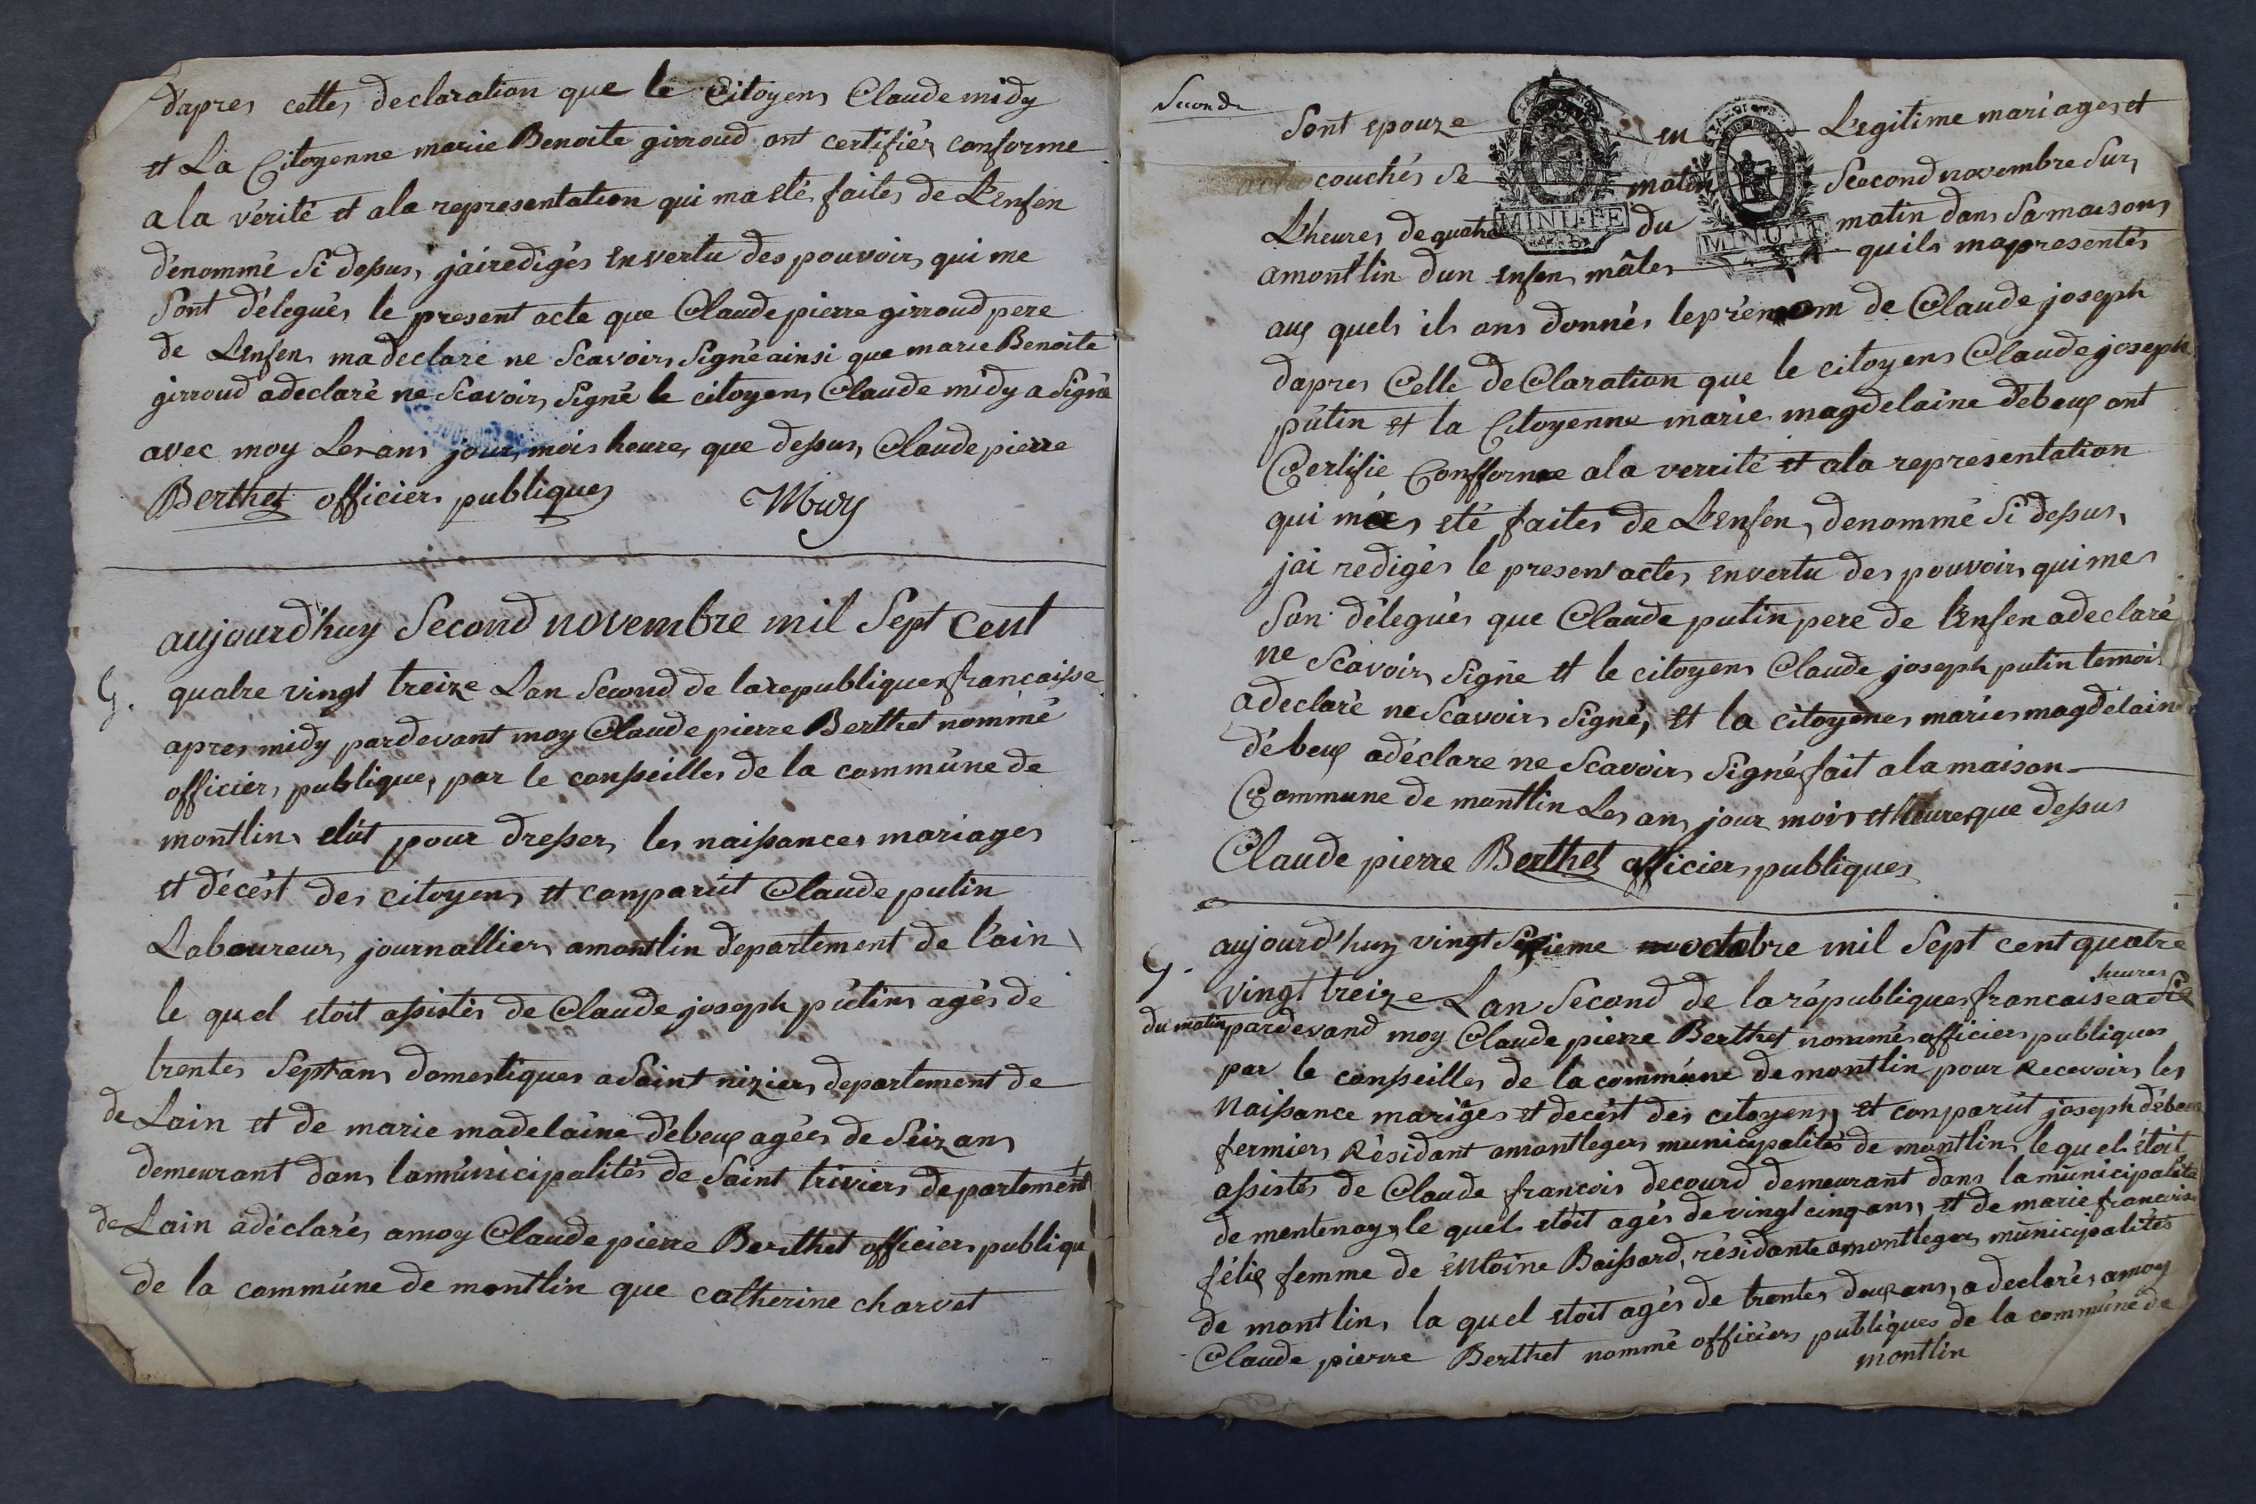 d'apres cette declaration que le Citoyen Claude midy
et La Citoyenne marie Benoite girroud ont certifiér conforme
a la vérité et ala representation qui ma eté faites de L'Enfen
dénommé Si dessus, jairedigés En vertu des pouvoirs qui me
Sont délegués le present acte que Claude pierre girroud pere
de L'Enfen madeclaré ne Scavoirs Signé ainsi que marie Benoite
girroud adeclaré ne Scavoirs Signé le citoyens Claude midy a Signé
avec moy Les ans jours mois heures que dessus, Claude pierre
Berthet officiers publiques Midy
aujourd'huy Second novembre mil Sept Cent
G. quatre vingt treize Lan Second de la republique francaisse
apres midy pardevant moy Claude pierre Berthet nommé
officiers publique, par le conseilles de la commúne de
montlins elút pour dresser les naissances mariages
et décést des citoyens et conparút Claude putin
Laboureurs journalliers amontlin département de l'ain
le quel etoit assistés de Claude joseph pútins agés de
trentes Septans domestiques a Saint niziers departement de
de Lain et de marie madelaine débeux agées de Seizans
demeurant dans la múnicipalités de Saint triviers departement
de Lain adéclarés amoy Claude pierre Berthet officiers publique
de la commúne de montlin que catherine charvet
Seconde
Sont epouze en Legitime mariages et
couchés de matin Second novembre Sur
L'heures de quatre du matin dans Sa maisons
MINUTE
MINUTE
amontlin dun enfens mâles quils mapresentés
aux quels ils ons donnés leprénom de Claude joseph
dapres Celle deClaration que le citoyens Claude joseph
pútin et la Citoyenne marie magdelaine débeux ont
Certifie Confforme ala verrité et ala representation
qui mas eté faites de L'Enfen, denommé Si dessus,
jai redigés le present actes En vertu des pouvoirs qui mes
Son délegués que Claude putin pere de l'Enfen adeclaré
ne Scavoirs Signe et le citoyens Claude joseph putin temoi
adeclaré ne Scavoirs Signé, et la citoyenes maries magdelaine
débeux adéclare ne Scavoirs Signé fait ala maison
Commune de montlin Les ans jour mois et heures que dessus
Claude pierre Berthet officiers publiques
aujourd'huy vingt Sixieme octobre mil Sept cent quatre
G. vingt treize Lan Second de la républiques francaise a Six
heures
du matin pardevand moy Claude pierre Berthet nommés officiers publiques
par le conseilles de la commúne de montlin pour Recevoirs les
Naissance mariges et decést des citoyens et conparút joseph débeux
fermiers Résidant amontlegers municipalités de montlins le quel étoit
assistés de Claude francois decourd demeurant dans la múnicipalité
de mentenay, le quel etoit agés de vingt cinq ans, et de marie francoise
félix femme de éntoine Boissard, résidante amontlegers múnicipalités
de montlins la quel etoit agés de trentes deux ans, a declarés amoy
Claude pierre Berthet nommé officiers públiques de la commúne de
montlin